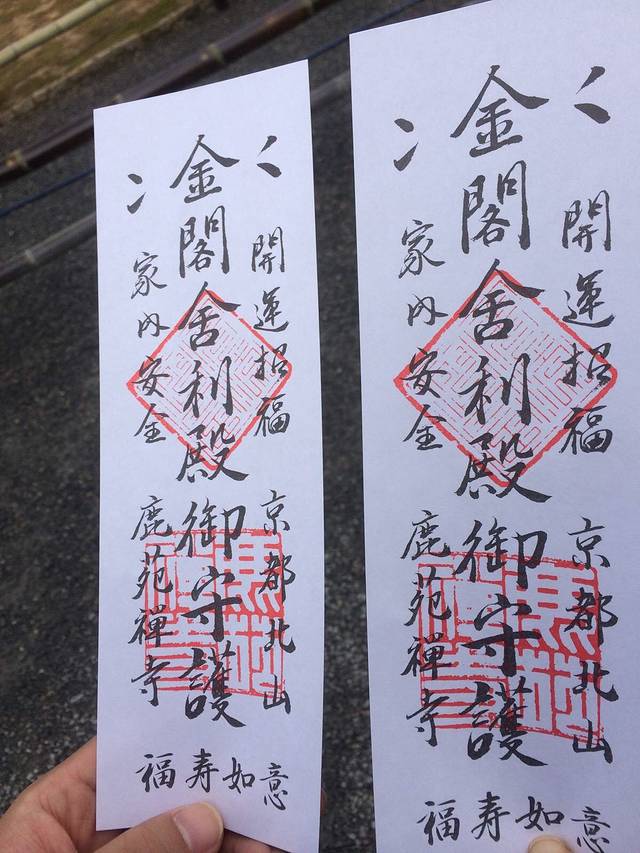 開運招福 京都北山
金閣舎利殿御守護
家内安全 鹿苑禪寺
福寿如意
開運招福 京都北山
金閣舎利殿御守護
家内安全 鹿苑禪寺
福寿如意